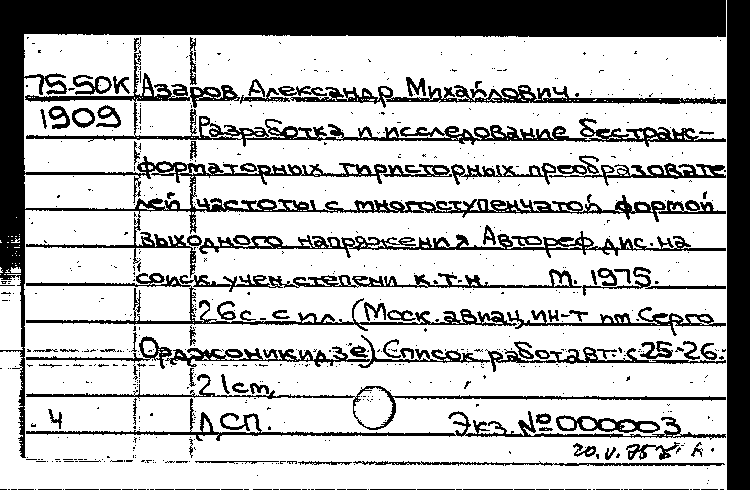 75-50К Азаров, Александр Михайлович.
1909 Разработка и исследование бестранс-
форматорных тиристорных преобразовате
лей частоты с многоступенчатой формой
выходного напряжения Автореф. дис. на
соиск. учен. степени к.т.н. М., 1975.
26с. с ил. (Моск. авиац. ин-т им. Серго
Орджоникидзе) Список работ авт: с 25-26.
21 cm,
4 ДСП. Экз. № 000003.
20.V.75